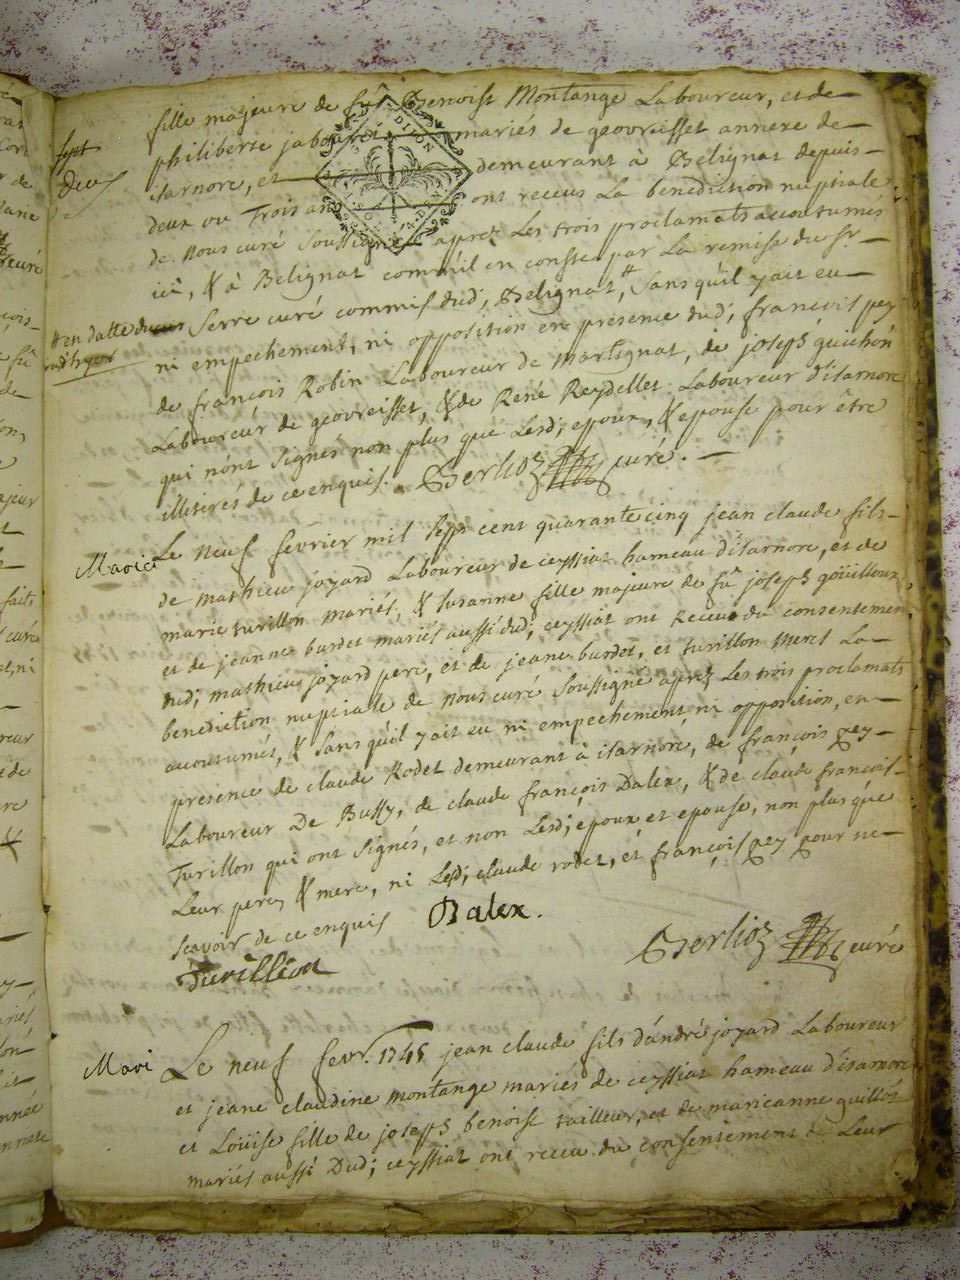 fille majeure de fû Benoist Montange Laboureur, et de
philiberte mariés de geovreisset annexe de
isarnore, et demeurant à Belignat depuis
deux ou Trois ans ont receus La benediction nuptiale
de Nous curé Soussigné apres Les trois proclamats accoutumés
ici, & à Belignat comm'il en conste par La remise du Sr
Serre curé commis dud; Belignat, Sans qu'il y ait eu
ni empechement, ni opposition en presence dud; françois pey
de françois Robin Laboureur de Martignat, de joseph guichon
Laboureur de geovreisset, & de René Reydellet Laboureur d'isarnore
qui n'ont signés non plus que Lesd; epoux, & epouse pour être
illiterés de ce enquis. Berlioz curé.
Le neuf fevrier mil sept cent quarante cinq jean claude fils
de mathieu joyard Laboureur de ceyssiat hameau d'isarnore, et de
marie turillon mariés, & susanne fille majeure de fû joseph goüilloux,
et de jeanne burdet mariés aussi dud; ceyssiat ont Receus du consentement
dud; mathieu joyard pere, et de jeane burdet, et turillon meres La
benediction nuptiale de nous curé Soussigné apres Les trois proclamats
accoutumés, & Sans qu'il y ait eu ni empechement, ni opposition, en
presence de claude Rodet demeurant à isarnore, de françois pey
Laboureur De Bussy, de claude françois Dalex, & de claude françois
Turillon qui ont signés, et non Lesd; epoux et epouse, non plus que
Leur pere, & mere, ni Lesd; claude rodet, et françois pey pour ne
scavoir de ce enquis Dalex.
Turillion
Berlioz curé
Mari
Le neuf fevr. 1745 jean claude fils d'andré joyard Laboureur
et jeane claudine montange mariés de ceyssiat hameau d'isarnore
et Loüise fille de joseph benoist tailleur, et de marieanne guillot
mariés aussi Dud; ceyssiat ont receu du consentement de Leur